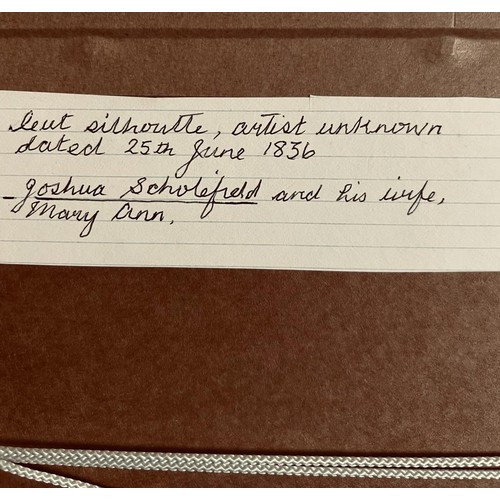 cut silhoutte, artist unknown
dated 25th June 1836
Joshua Scholefield and his wife,
Mary Ann.